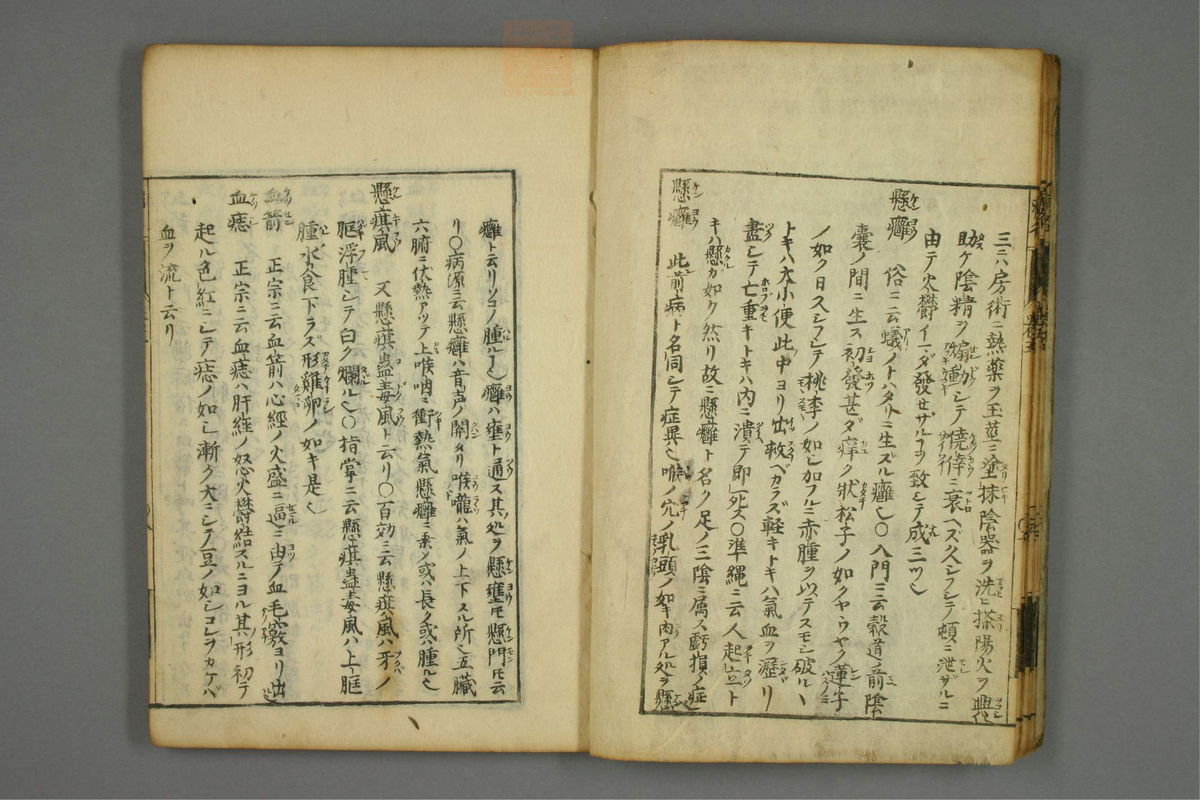 三ニハ房術ニ熱藥ヲ玉莖ニ塗抹陰器ヲ洗ヒ搽陽火ヲ興
助ケ陰精ヲ煽動シテ僥倖ニ衰ヘズ久シフシテ頓ニ泄ザルニ
由テ火欝イマダ發セザルヲ致シテ成三ツ也
懸癰 俗ニ云蟻ノトハタリニ生ズル癰也〇八門ニ云穀道ノ前陰
嚢ノ間ニ生ス初發甚ダ痒ク狀松子ノ如クヤウヤク蓮子
ノ如ク日久シフシテ桃李ノ如シ加フルニ赤腫ヲ以テスモシ破ル丶
トキハ大小便此中ヨリ出救ベカラズ軽キトキハ氣血ヲ瀝リ
盡シテ亡重キトキハ内ニ潰テ即死ス〇準繩ニ云人起立ト
キハ懸カ如ク然リ故ニ懸癰ト名ク足ノ三陰ニ屬ス虧損ノ症
懸癰 此前病ト名同シテ症異也喉ノ穴ノ乳頭ノ如キ肉アル処ヲ懸
癰ト云リソコノ腫ル丶也癰ハ壅ト通ス其処ヲ懸壅トモ懸門トモ云
リ〇病源ニ云懸癰ハ音声ノ關タリ喉嚨ハ氣ノ上下スル所也五臓
六腑ニ伏熱アツテ上喉吶ニ衝熱氣懸癰ニ乗ノ或ハ長ク或ハ腫ル也
懸瘼風 又懸瘼蟲毒風ト云リ〇百効ニ云懸瘼風ハ牙ノ
腫浮腫シテ白ク爛ル也〇指掌ニ云懸瘼蟲毒風ハ上腭
腫水食下ラス形雞卵ノ如キ是也
血箭 正宗ニ云血箭ハ心經ノ火盛ニ逼ニ由テ血毛竅ヨリ出
血痣 正宗ニ云血痣ハ肝經ノ怒火欝結スルニヨル其形初テ
起ル色紅ニシテ痣ノ如シ漸ク大ニシテ豆ノ如シコレヲカケバ
血ヲ流ト云リ